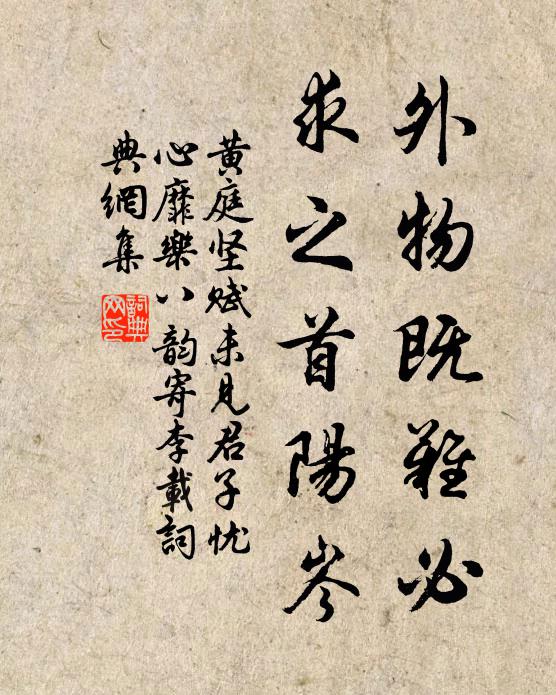 外物既難必
求之首陽岑
黄庭坚賦未見君子忧
心靡樂八韵寄李載詞
典網集
詞典
网印